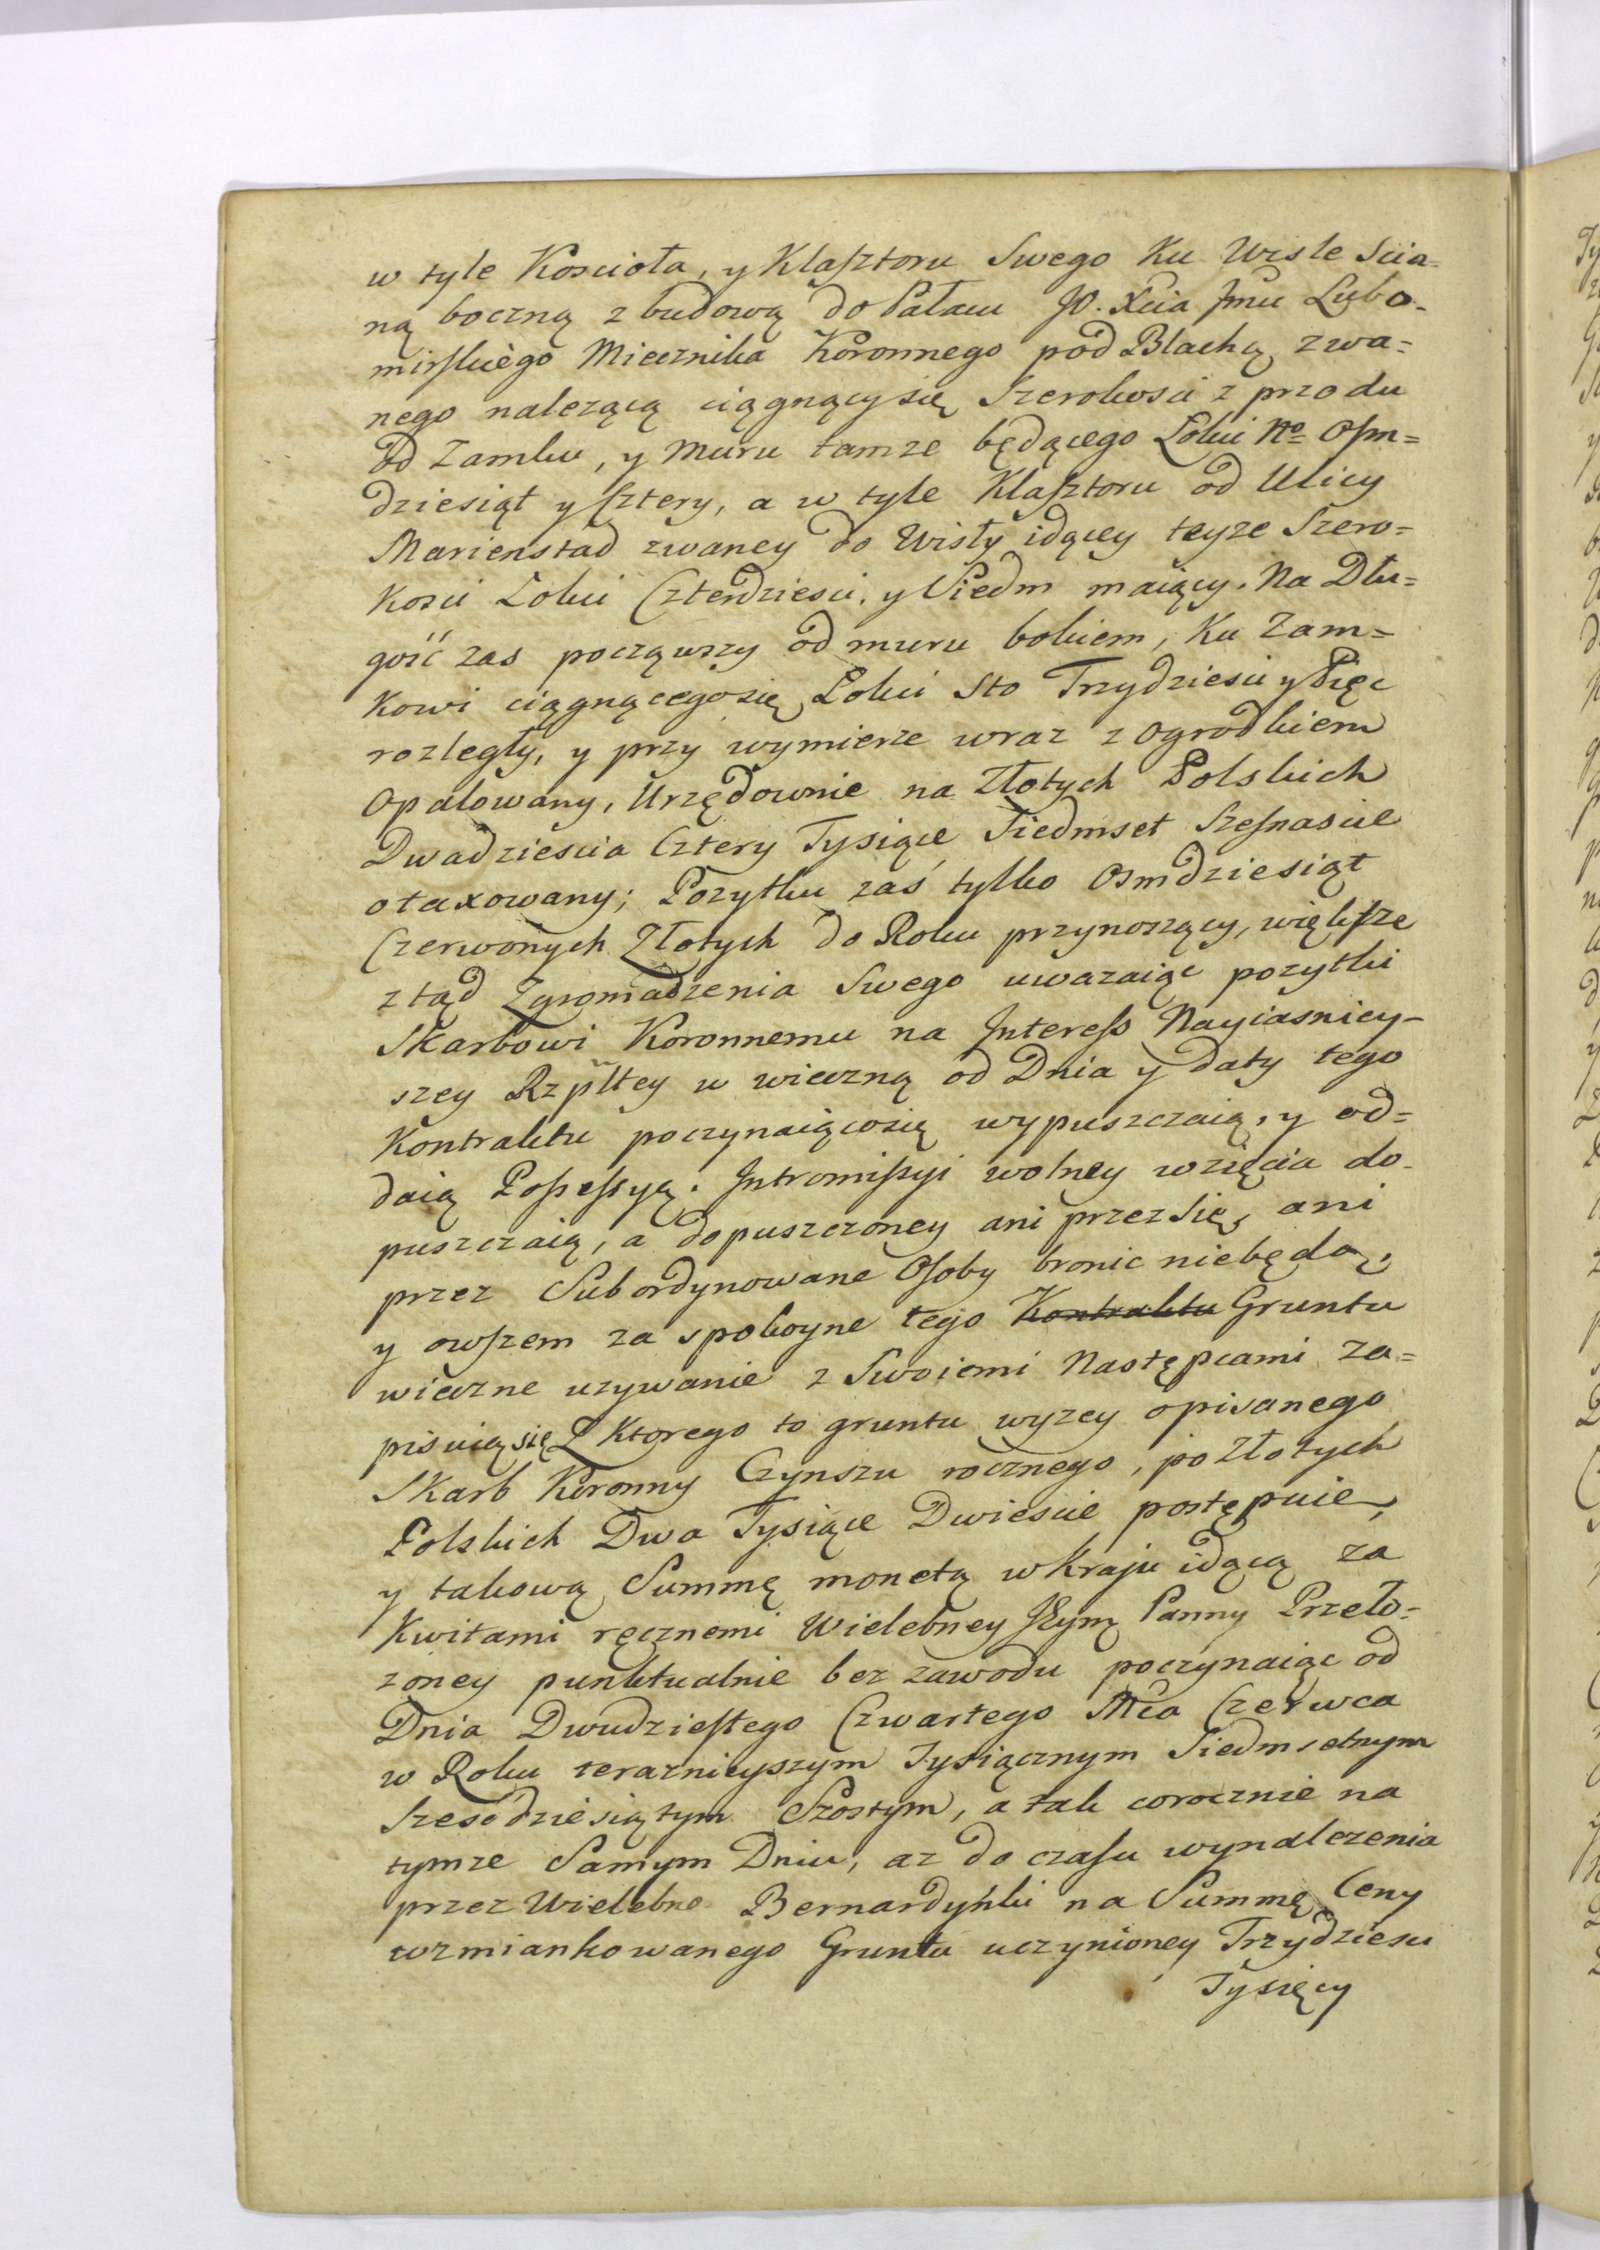 w tyle Kosciola, y Klasztoru Swego Ku Wisle Scia-
ną boczną z budową do Pałacu JO. Xcia Jmci Lubo-
mirskiego Miecznika Koronnego pod Blachą zwa=
nego nalezącą ciągnący się Szerokosci z przodu
od Zamku, y Muru tamze będącego Łokci No. Osm=
dziesiąt y Cztery, a w tyle Klasztoru od Ulicy
Marienstad zwaney do Wisły idącey teyze Szero=
kosci Łokci Czterdziesci, y Siedm maiący. Na Dłu=
gość zas począwszy od muru bokiem, Ku Zam=
kowi ciągnącego się Łokci Sto Trzydziesci y Pięc
rozległy, y przy wymierze wraz z Ogrodkiem
Opalowany, Urzędownie na Złotych Polskich
Dwadziescia Cztery Tysiące Siedmset Szesnascie
otaxowany; Pozytku zaś tylko Osmdziesiąt
Czerwonych Złotych do Roku przynoszący, większe
ztąd Zgromadzenia Swego uwazaiąc pozytki
Skarbowi Koronnemu na Interess Nayiasniey-
szey Rzpltey w wieczną od Dnia y daty tego
Kontraktu poczynaiącosię wypuszczaią, y od=
daią Possessyą. Intromissyi wolney wzięcia do-
puszczaią, a dopuszczoney ani przez Się, ani
przez Subordynowane Osoby bronic niebędą,
y owszem za spokoyne tego Kontraktu Gruntu
wieczne uzywanie z Swoiemi Następcami Za=
pisuią się Z Ktorego to gruntu wyzey opisanego
Skarb Koronny Czynszu rocznego, po Złotych
Polskich Dwa Tysiące Dwiescie postępuie,
y takową Summę monetą w Kraju idącą za
Kwitami ręcznemi Wielebney JEymę Panny Przeło=
zoney punktualnie bez zawodu poczynaiąc od
Dnia Dwudziestego Czwartego Mca Czerwca
w Roku teraznieyszym Tysiącznym Siedmsetnym
Szescdziesiątym Szostym, a tak corocznie na
tymze Samym Dniu, az do czasu wynalezenia
przez Wielebne Bernardynki na Summę Ceny
wzmiankowanego Gruntu uczynioney Trzydziesci
Tysięcy